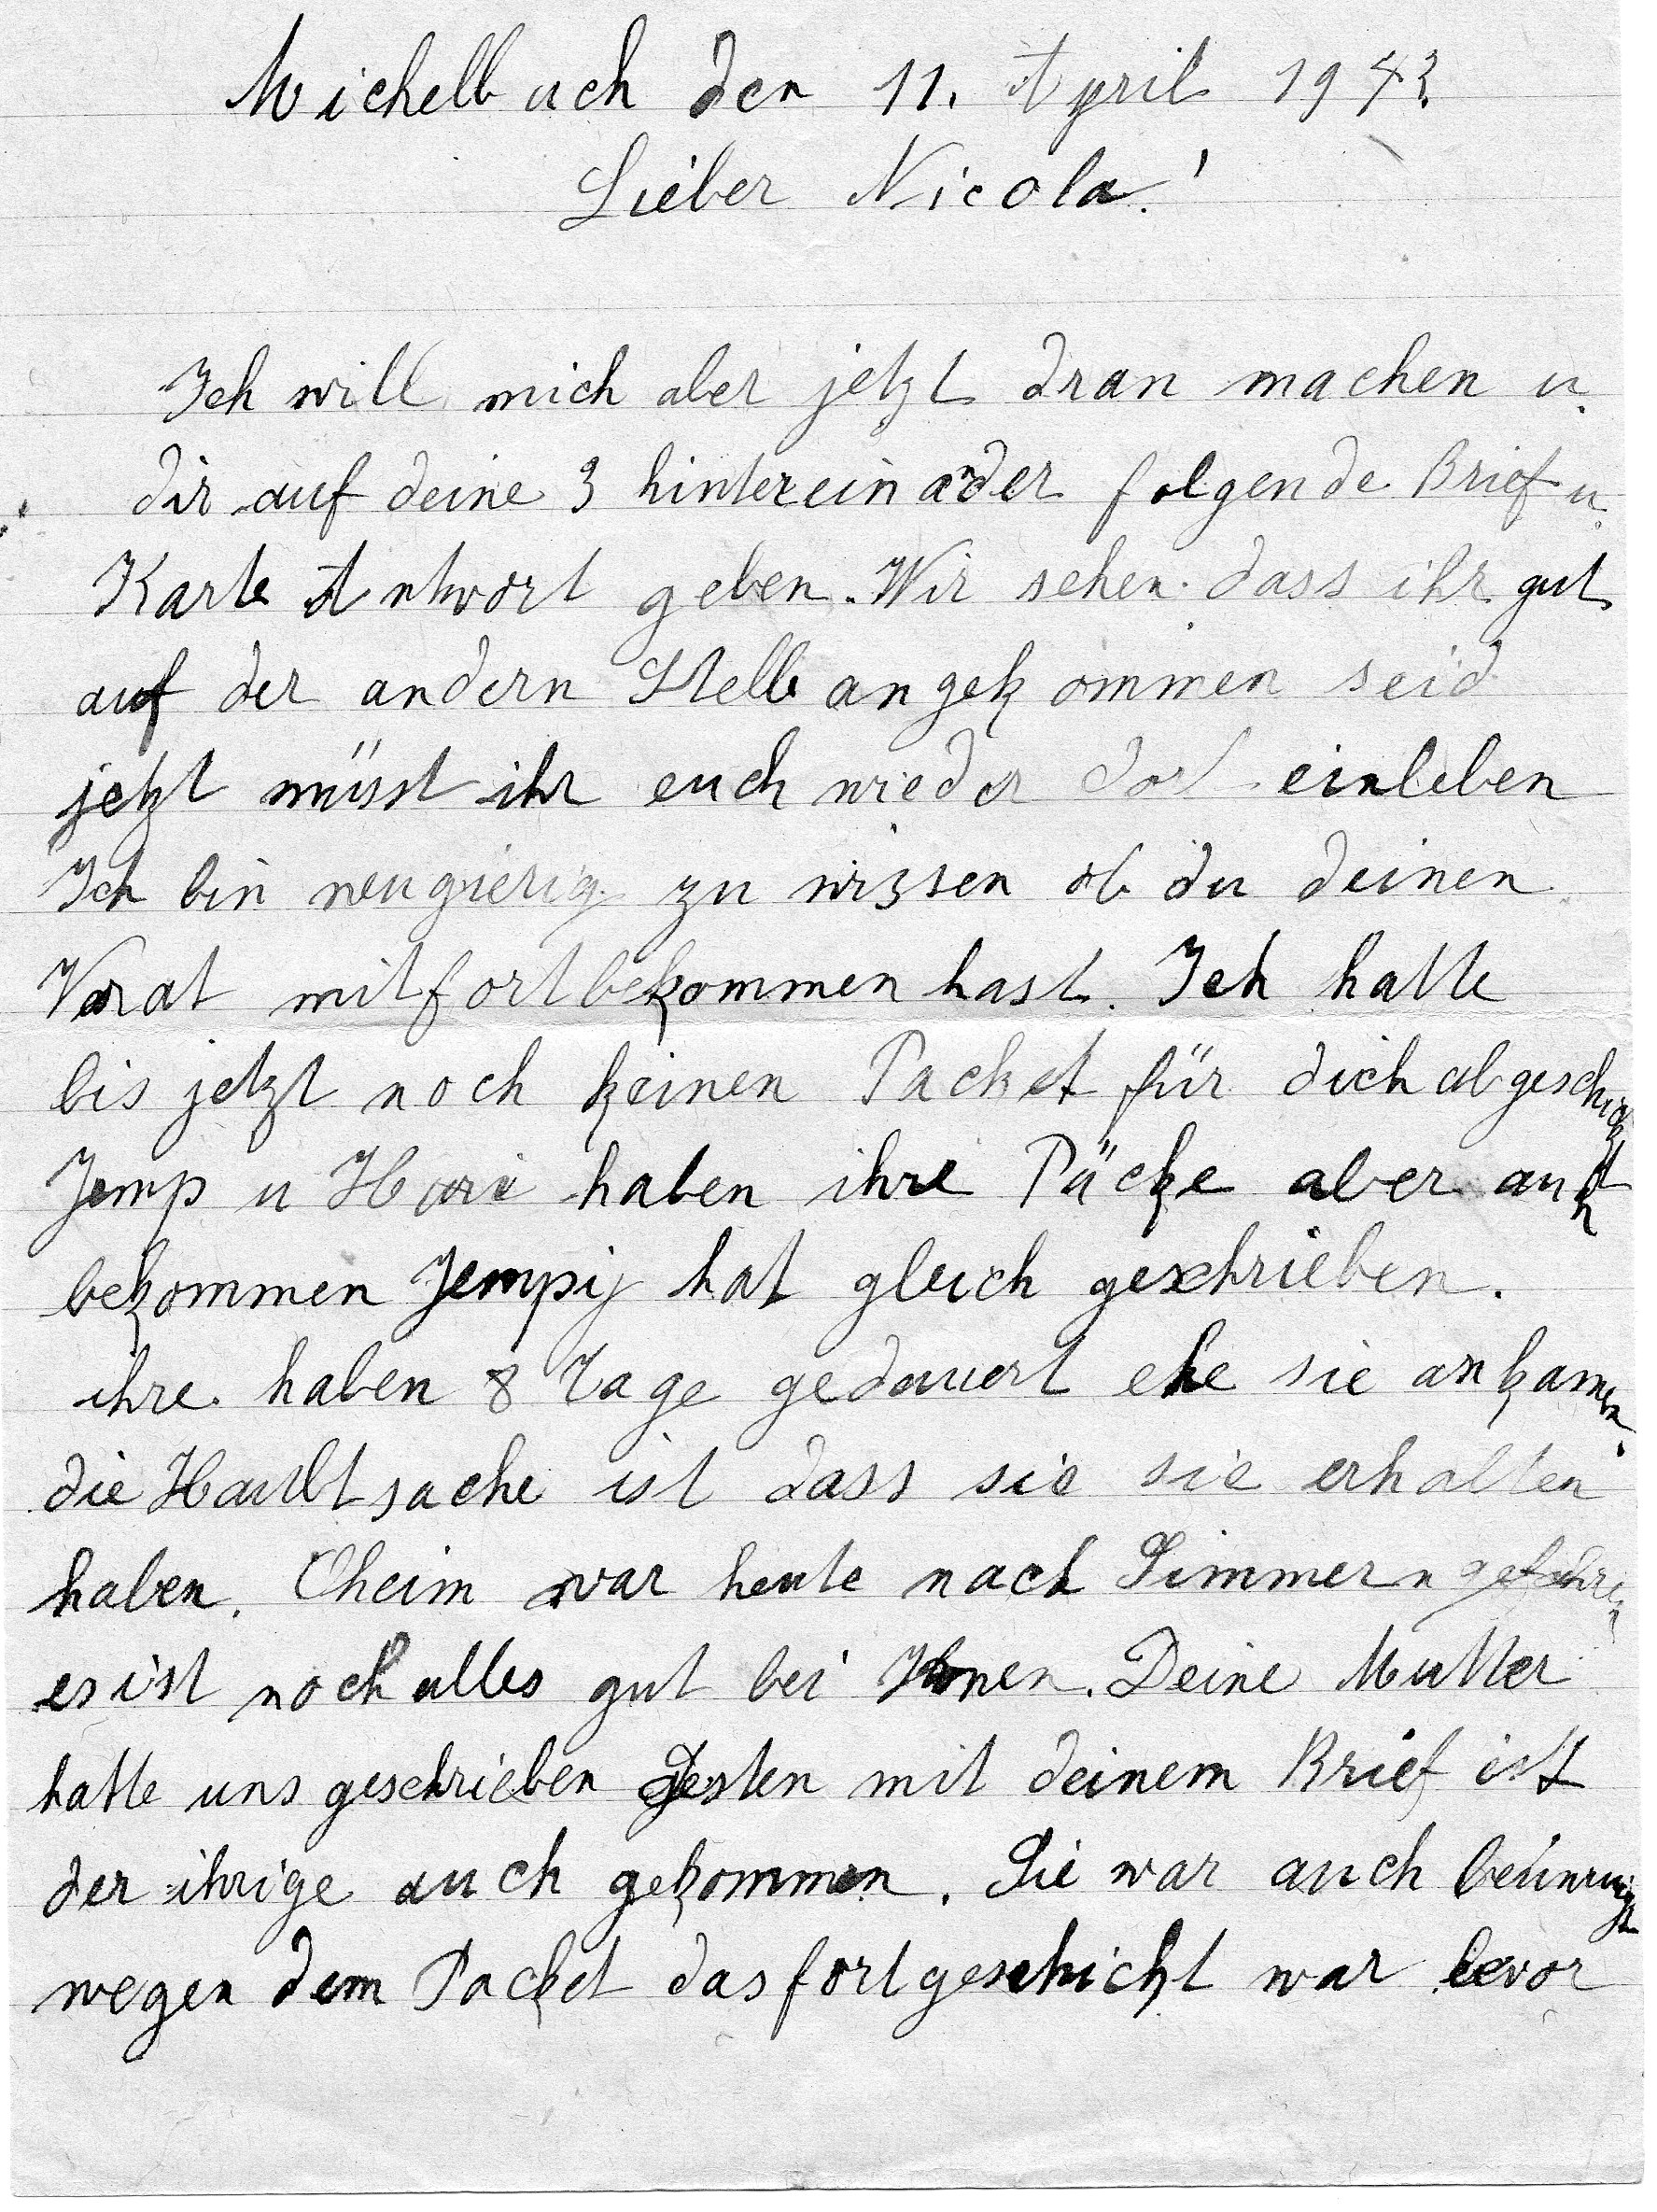 Michelbuch den 11. April 1943
Lieber Nicola!
Ich will mich aber jetzt dran machen u.
dir auf deine 3 hintereinander folgende Brief u.
Karte Antwort geben. Wir sehen dass ihr gut
auf der andern Stelle angekommen seid
jetzt müsst ihr euch wieder dort einleben
Ich bin neugierig zu wissen ob du deinen
Vorat mitfortbekommen hast. Ich hatte
bis jetzt noch keinen Packet für dich abgeschickt
Jemp u haben ihre Päcke aber auch
bekommen Jempij hat gleich geschrieben.
ihre haben 8 Tage gedauert ehe sie ankamen.
die Haubtsache ist dass sie sie erhalten
haben. Oheim war heute nach Simmern gefahren
es ist noch alles gut bei Ihnen. Deine Mutter
hatte uns geschrieben Gesten mit deinem Brief ist
der ihrige auch gekommen. Sie war auch beunruigt
wegen dem Packet das fortgeschickt war bevor